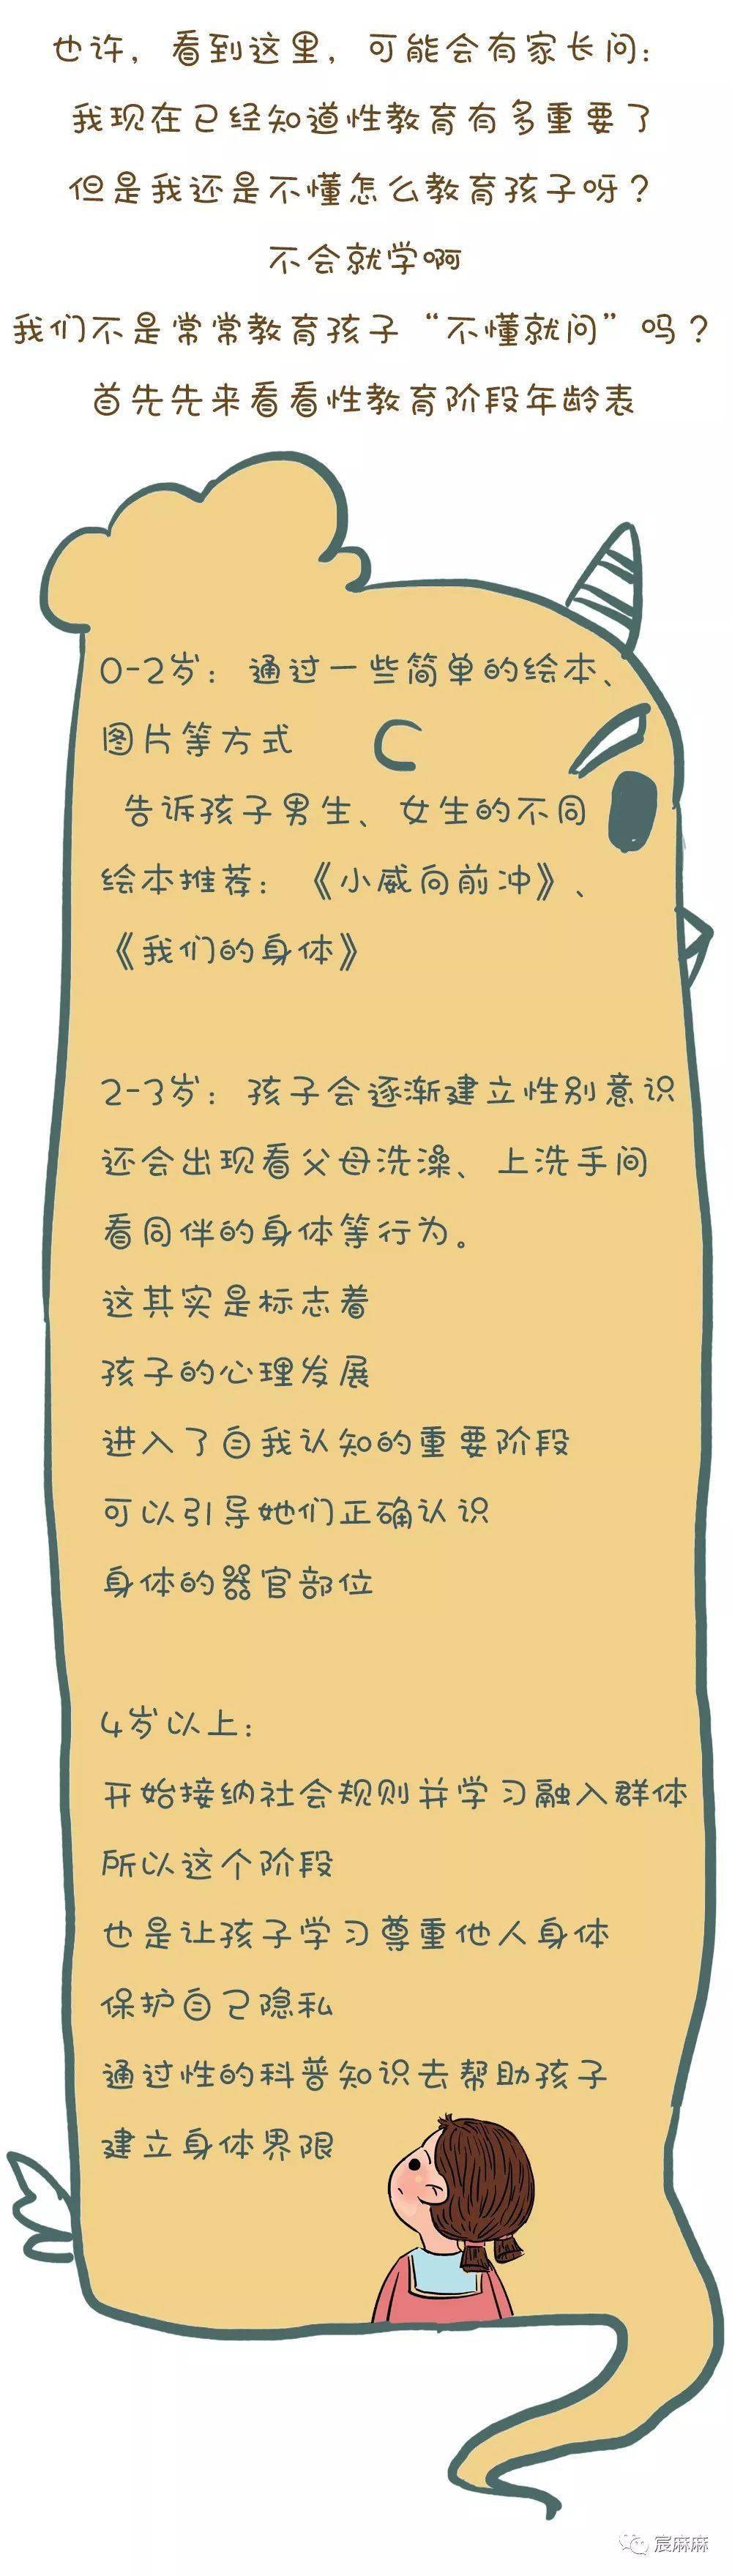 也许，看到这里，可能会有家长问：
我现在已经知道性教育有多重要了
但是我还是不懂怎么教育孩子呀？
不会就学啊
我们不是常常教育孩子“不懂就问”吗？
首先先来看看性教育阶段年龄表
0-2岁：通过一些简单的绘本、
图片等方式
告诉孩子男生、女生的不同
绘本推荐：《小威向前冲》、
《我们的身体》
2-3岁：孩子会逐渐建立性别意识
还会出现看父母洗澡、上洗手间
看同伴的身体等行为。
这其实是标志着
孩子的心理发展
进入了自我认知的重要阶段
可以引导她们正确认识
身体的器官部位
4岁以上：
开始接纳社会规则并学习融入群体
所以这个阶段
也是让孩子学习尊重他人身体
保护自己隐私
通过性的科普知识去帮助孩子
建立身体界限
宸麻麻